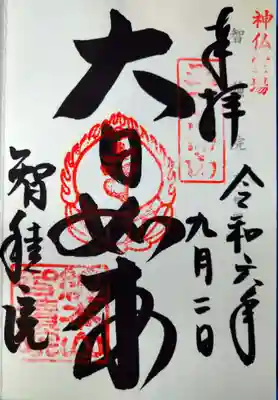 神仏霊場
奉拝
令和六年
九月二日
大日如来
智積院